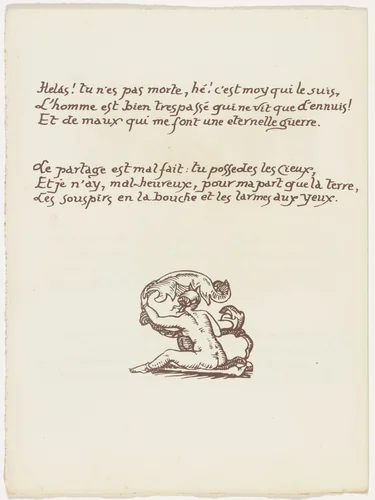 Helas! tu n'es pas morte, hé! c'est moy qui le suis,
L'homme est bien trespassé qui ne vit que d'ennuis!
Et de maux qui me font une eternelle guerre.
Le partage est mal fait: tu possedes les Cieux,
Et je n'ay, mal-heureux, pour ma part que la terre,
Les souspirs en la bouche et les larmes aux yeux.